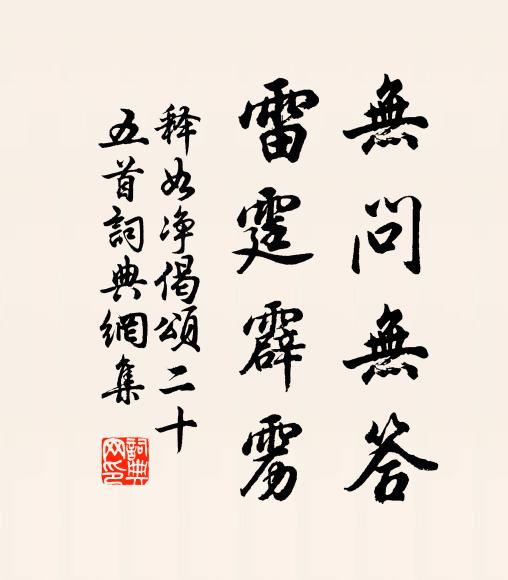 無問無答
雷霆霹雳
释如净偈頌二十
五首詞典網集
詞典网印